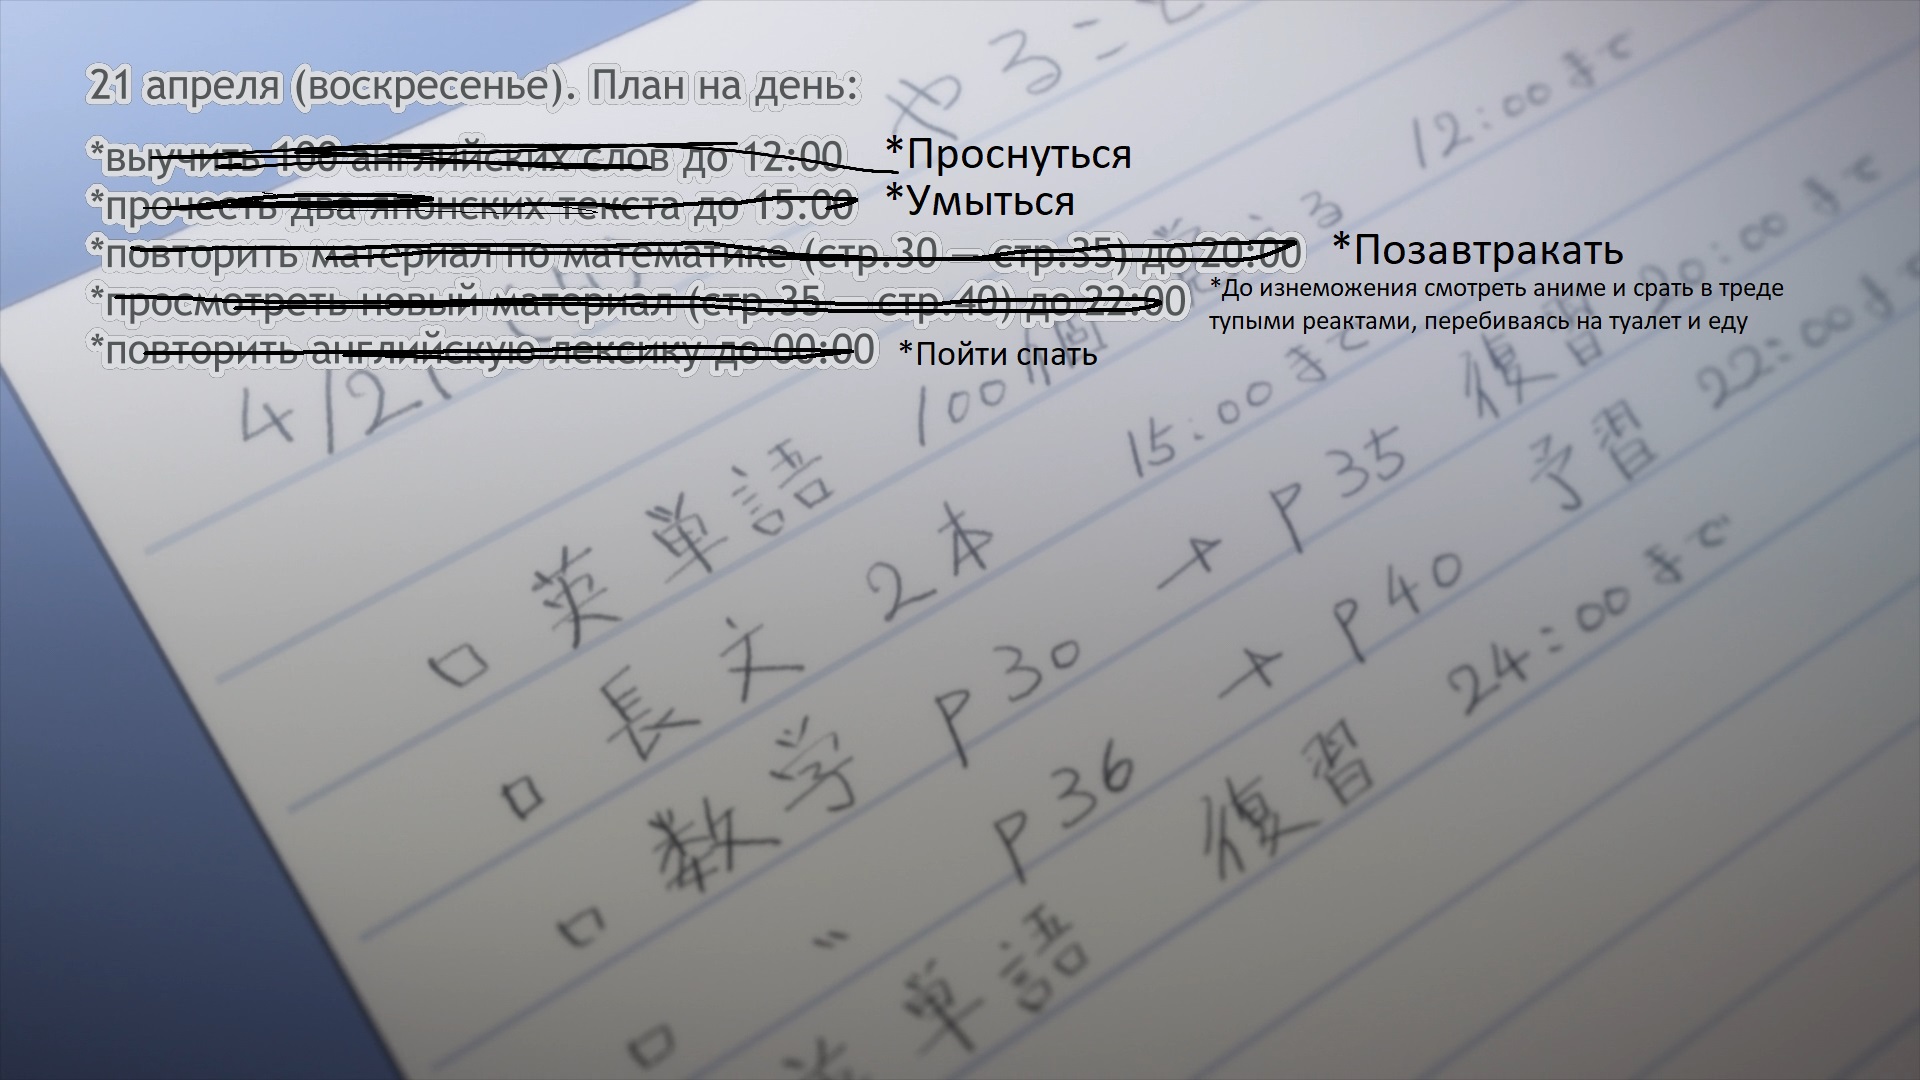 21 апреля (воскресенье). План на день:
*выучить 100 английских слов до 12:00 *Проснуться
*прочесть два японских текста до 15:00 *Умыться
*повторить материал по математике (стр.30 — стр.35) до 20:00 *Позавтракать
*просмотреть новый материал (стр.35 — стр.40) до 22:00 *До изнеможения смотреть аниме и срать в треде
тупыми реактами, перебиваясь на туалет и еду
*повторить английскую лексику до 00:00 *Пойти спать
やること
4/21
□ 英単語 100個 12:00まで
□ 長文 2本 15:00まで
□ 数学 P30 → P35 復習 20:00まで
□ 〃 P36 → P40 予習 22:00まで
英単語 復習 24:00まで